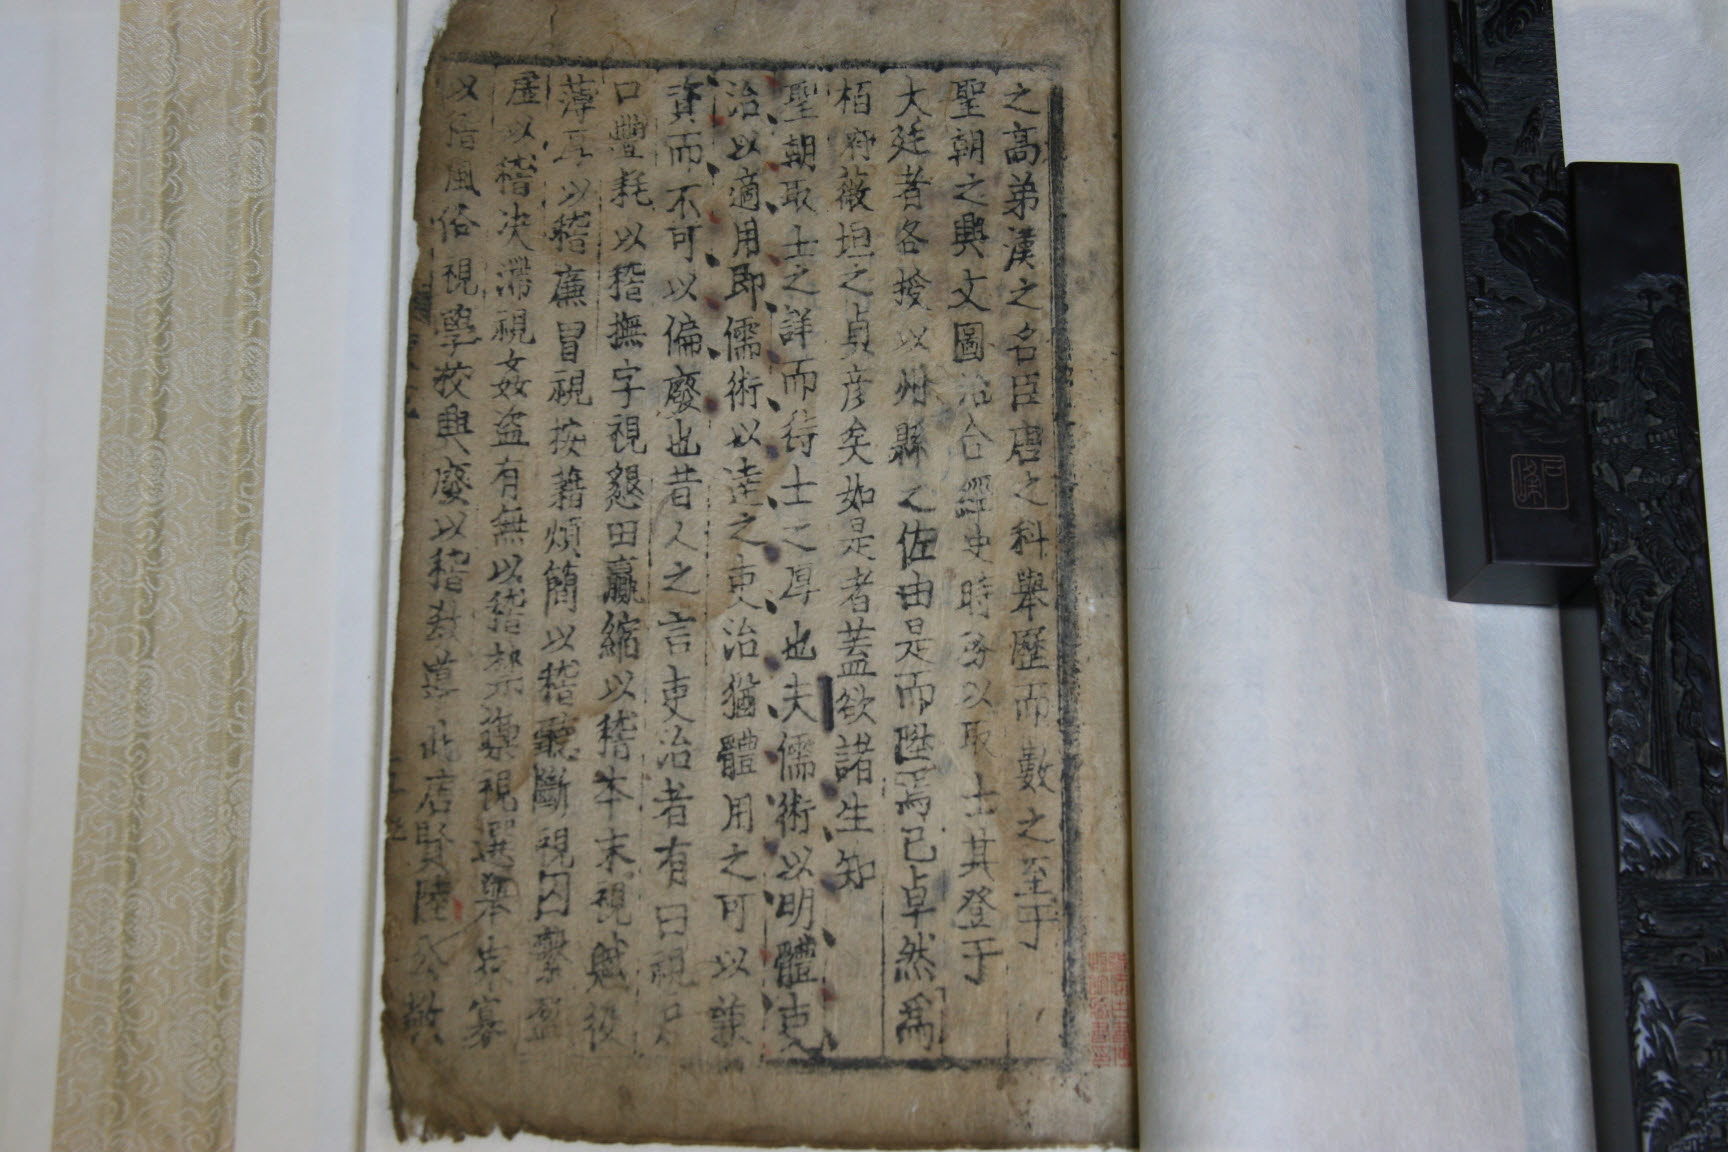 之高弟漢之名臣唐之科舉歷而數之至于
聖朝之興文圖治合經史時務以取士其登于
大廷者各授以州縣之佐由是而陞焉已卓然爲
栢府薇垣之貞彦矣如是者蓋欲諸生知
聖朝取士之詳而待士之厚也夫儒術以明體吏
治以適用即儒術以達之吏治猶體用之可以兼
資而不可以偏廢也昔人之言吏治者有曰視户
口豐耗以稽撫字視懇田贏縮以稽本末視賦役
薄厚以稽廉冒視按藉煩簡以稽聽斷視囚繫盈
虚以稽决滯視姦盗有無以稽禁禦視選舉衆寡
以稽風俗視學校興廢以稽教導此唐賢陸公敬